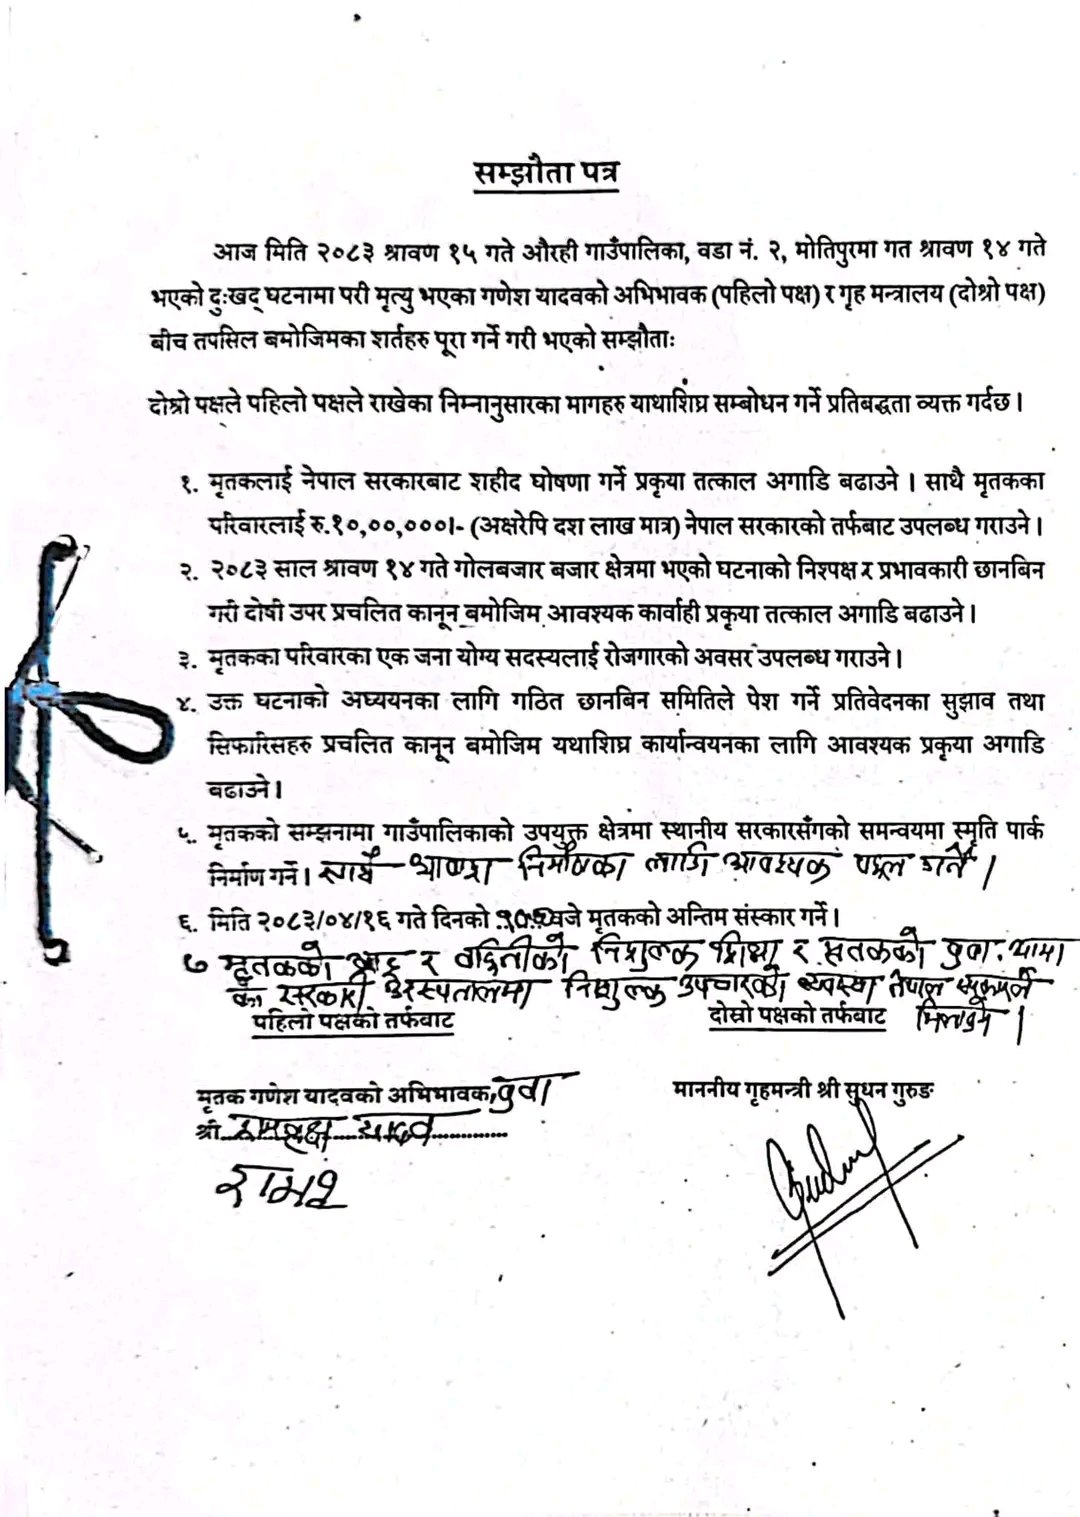 सम्झौता पत्र
आज मिति २०८३ श्रावण १५ गते औरही गाउँपालिका, वडा नं. २, मोतिपुरमा गत श्रावण १४ गते
भएको दुःखद् घटनामा परी मृत्यु भएका गणेश यादवको अभिभावक (पहिलो पक्ष) र गृह मन्त्रालय (दोश्रो पक्ष)
बीच तपसिल बमोजिमका शर्तहरु पूरा गर्ने गरी भएको सम्झौताः
दोश्रो पक्षले पहिलो पक्षले राखेका निम्नानुसारका मागहरु याथाशिघ्र सम्बोधन गर्ने प्रतिबद्धता व्यक्त गर्दछ ।
१. मृतकलाई नेपाल सरकारबाट शहीद घोषणा गर्ने प्रकृया तत्काल अगाडि बढाउने । साथै मृतकका
परिवारलाई रु.१०,००,०००।- (अक्षरेपि दश लाख मात्र) नेपाल सरकारको तर्फबाट उपलब्ध गराउने ।
२. २०८३ साल श्रावण १४ गते गोलबजार बजार क्षेत्रमा भएको घटनाको निश्पक्ष र प्रभावकारी छानबिन
गरी दोषी उपर प्रचलित कानून बमोजिम आवश्यक कार्वाही प्रकृया तत्काल अगाडि बढाउने ।
३. मृतकका परिवारका एक जना योग्य सदस्यलाई रोजगारको अवसर उपलब्ध गराउने ।
४. उक्त घटनाको अध्ययनका लागि गठित छानबिन समितिले पेश गर्ने प्रतिवेदनका सुझाव तथा
सिफारिसहरु प्रचलित कानून बमोजिम यथाशिघ्र कार्यान्वयनका लागि आवश्यक प्रकृया अगाडि
बढाउने ।
५. मृतकको सम्झनामा गाउँपालिकाको उपयुक्त क्षेत्रमा स्थानीय सरकारसँगको समन्वयमा स्मृति पार्क
निर्माण गर्ने । साथै निर्माणका लागि आवश्यक पहल गर्ने ।
६. मिति २०८३/०४/१६ गते दिनको बजे मृतकको अन्तिम संस्कार गर्ने ।
७ मृतकको भाइ र बहिनीको निशुल्क शिक्षा र मृतकको बुवा. आमा
का सरकारी अस्पतालमा निशुल्क उपचारको व्यवस्था नेपाल सरकारले
पहिलो पक्षको तर्फबाट दोस्रो पक्षको तर्फबाट मिलाउने ।
मृतक गणेश यादवको अभिभावक, बुवा माननीय गृहमन्त्री श्री सुधन गुरुङ
श्री यादव